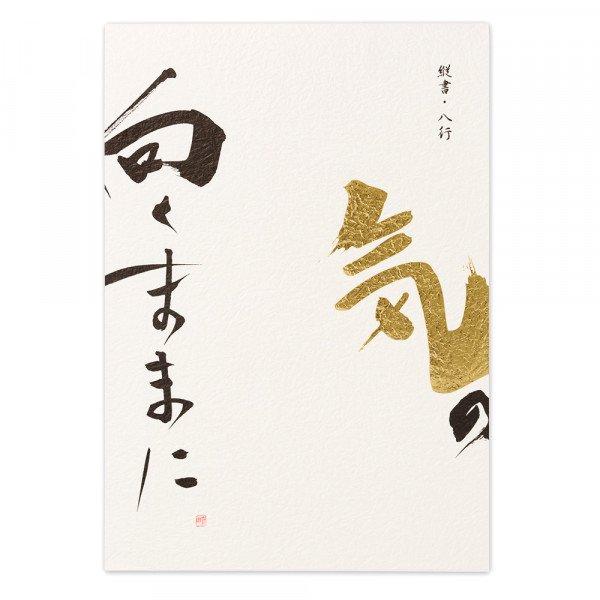 縦書・八行
気の
向くままに